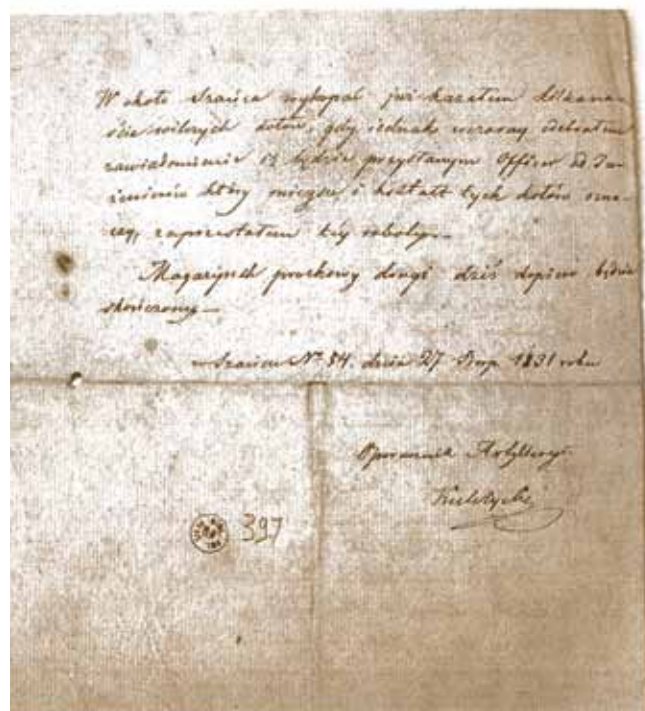 W około Szańca wykopał już kazałem kilkana-
ście wilczych dołów, gdy iednak wczoray odebrałem
zawiadomienie iż będzie przysłanym Officer od In-
żenierów który mieysce i kształt tych dołów ozna-
czy, zaprzestałem téy roboty.—
Magazynek prochowy drugi dziś dopiero będzie
skończony.—
w Szańcu Nº 54. dnia 27 Sierp. 1831 roku
Artylleryi
397